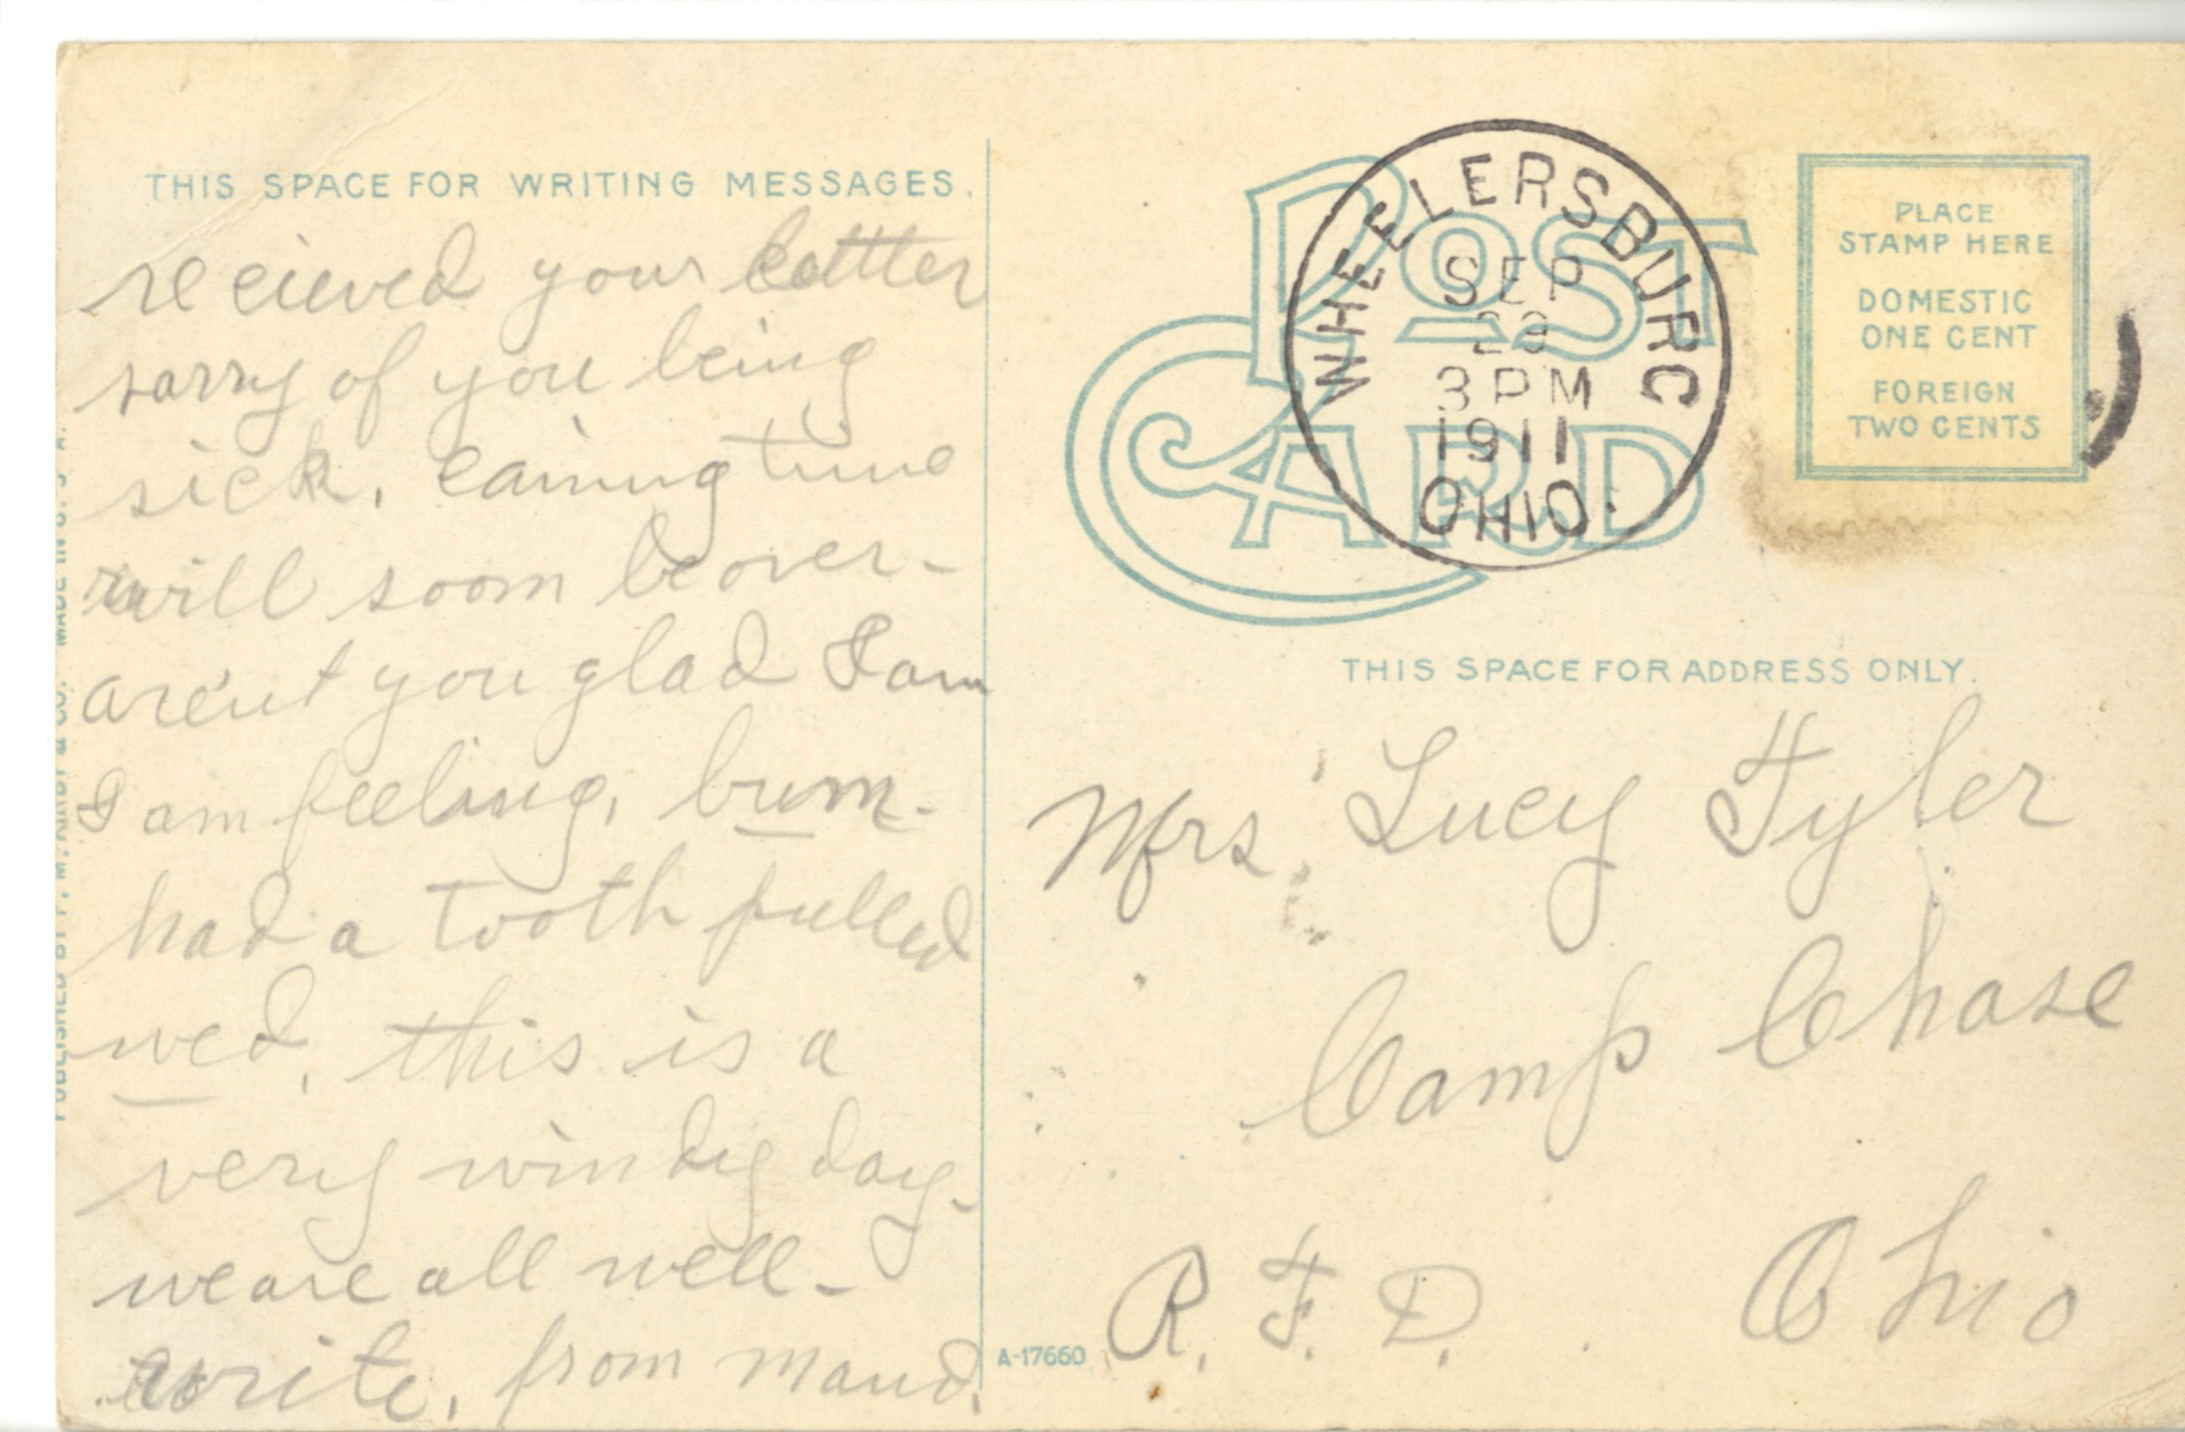 THIS SPACE FOR WRITING MESSAGES.
recieved your letter
sorry of you being
sick, caining time
will soom be over-
are'nt you glad I am
I am feeling, bum.
had a tooth pulled
wed, this is a
very windy day.
we are all well-
write, from maud.
PUBLISHED BY F. M. KIRBY & CO. MADE IN U. S. A.
POST CARD
WHEELERSBURG
SEP
23
3 PM
1911
OHIO.
PLACE
STAMP HERE
DOMESTIC
ONE CENT
FOREIGN
TWO CENTS
THIS SPACE FOR ADDRESS ONLY.
Mrs Lucy Tyler
Camp Chase
R. F. D. Ohio
A-17660